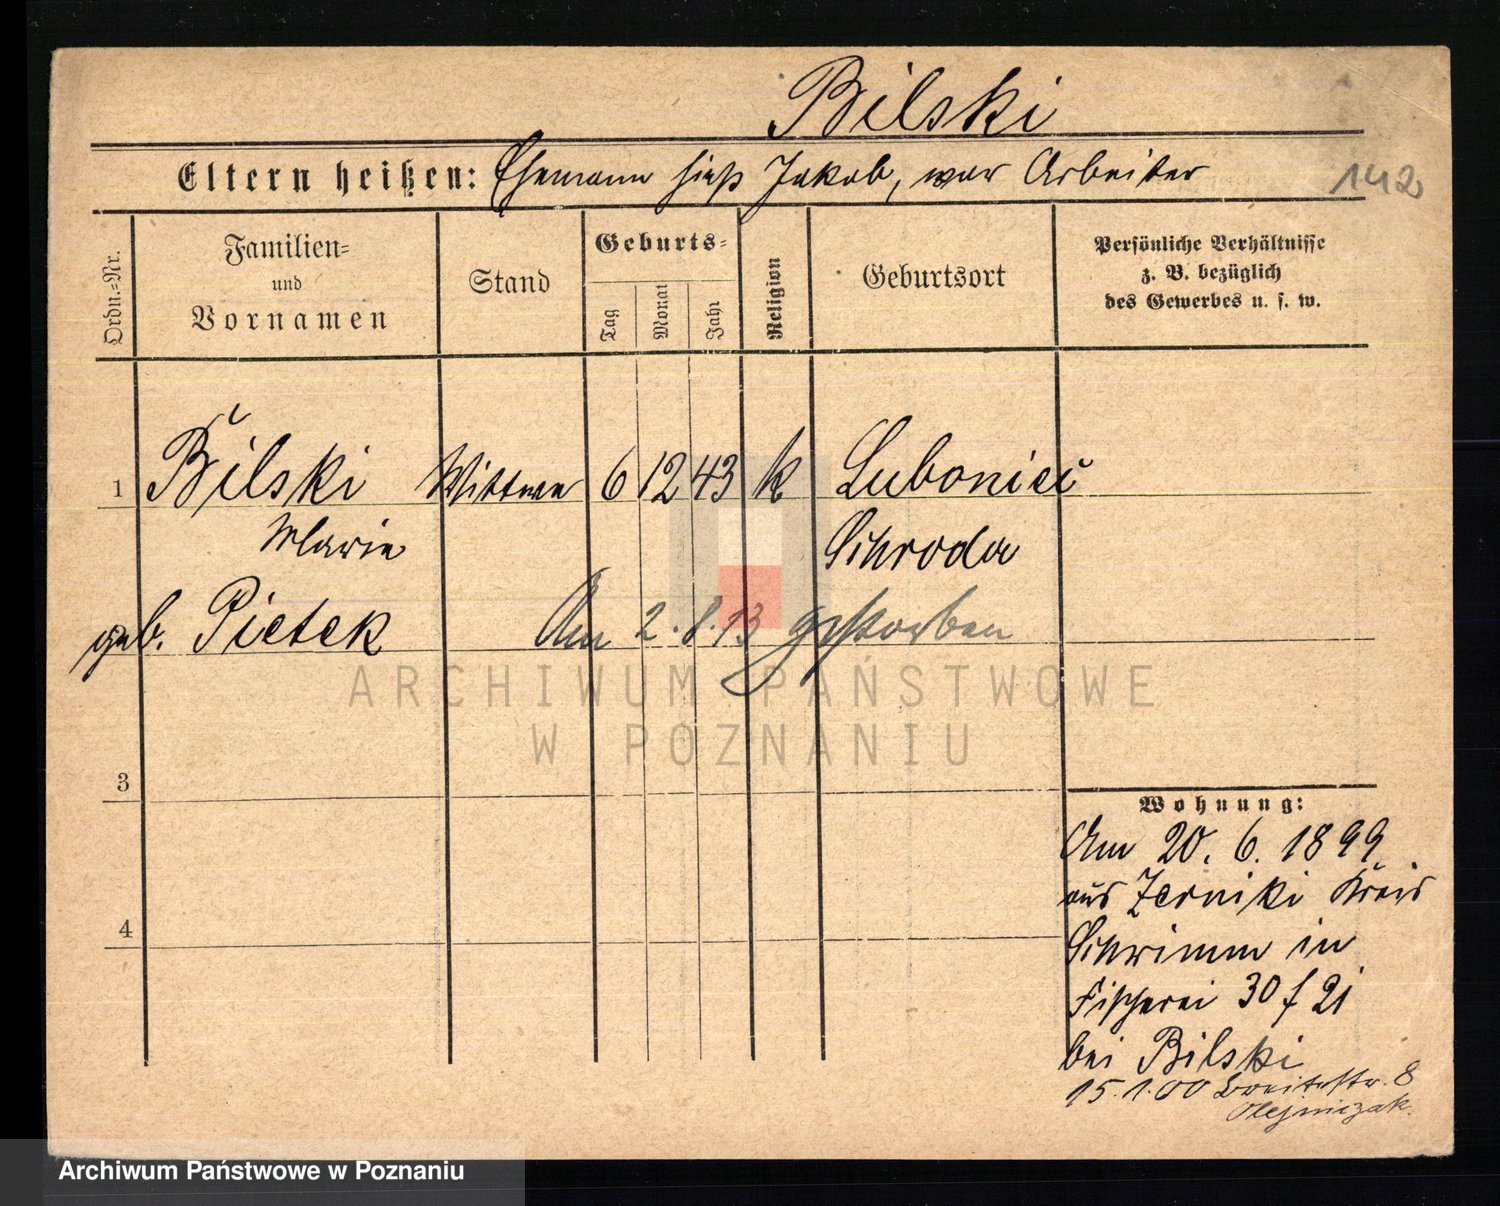 Bilski
Eltern heißen: Ehemann hieß Jakob, war Arbeiter
142
Ordn.=Nr.
Familien=
und
Vornamen
Stand
Geburts=
Tag
Monat
Jahr
Religion
Geburtsort
Persönliche Verhältnisse
z. B. bezüglich
des Gewerbes u. s. w.
1 Bilski Wittwe 6 12 43 k Luboniec
Marie Schroda
geb. Pietek Am 2.8.13 gestorben
ARCHIWUM PAŃSTWOWE
W POZNANIU
3
Wohnung:
Am 20. 6. 1899
aus Zerniki Kreis
4
Schrimm in
Fischerei 30 f 21
bei Bilski
15.1.00 Breitestr. 8
Olejniczak.
Archiwum Państwowe w Poznaniu